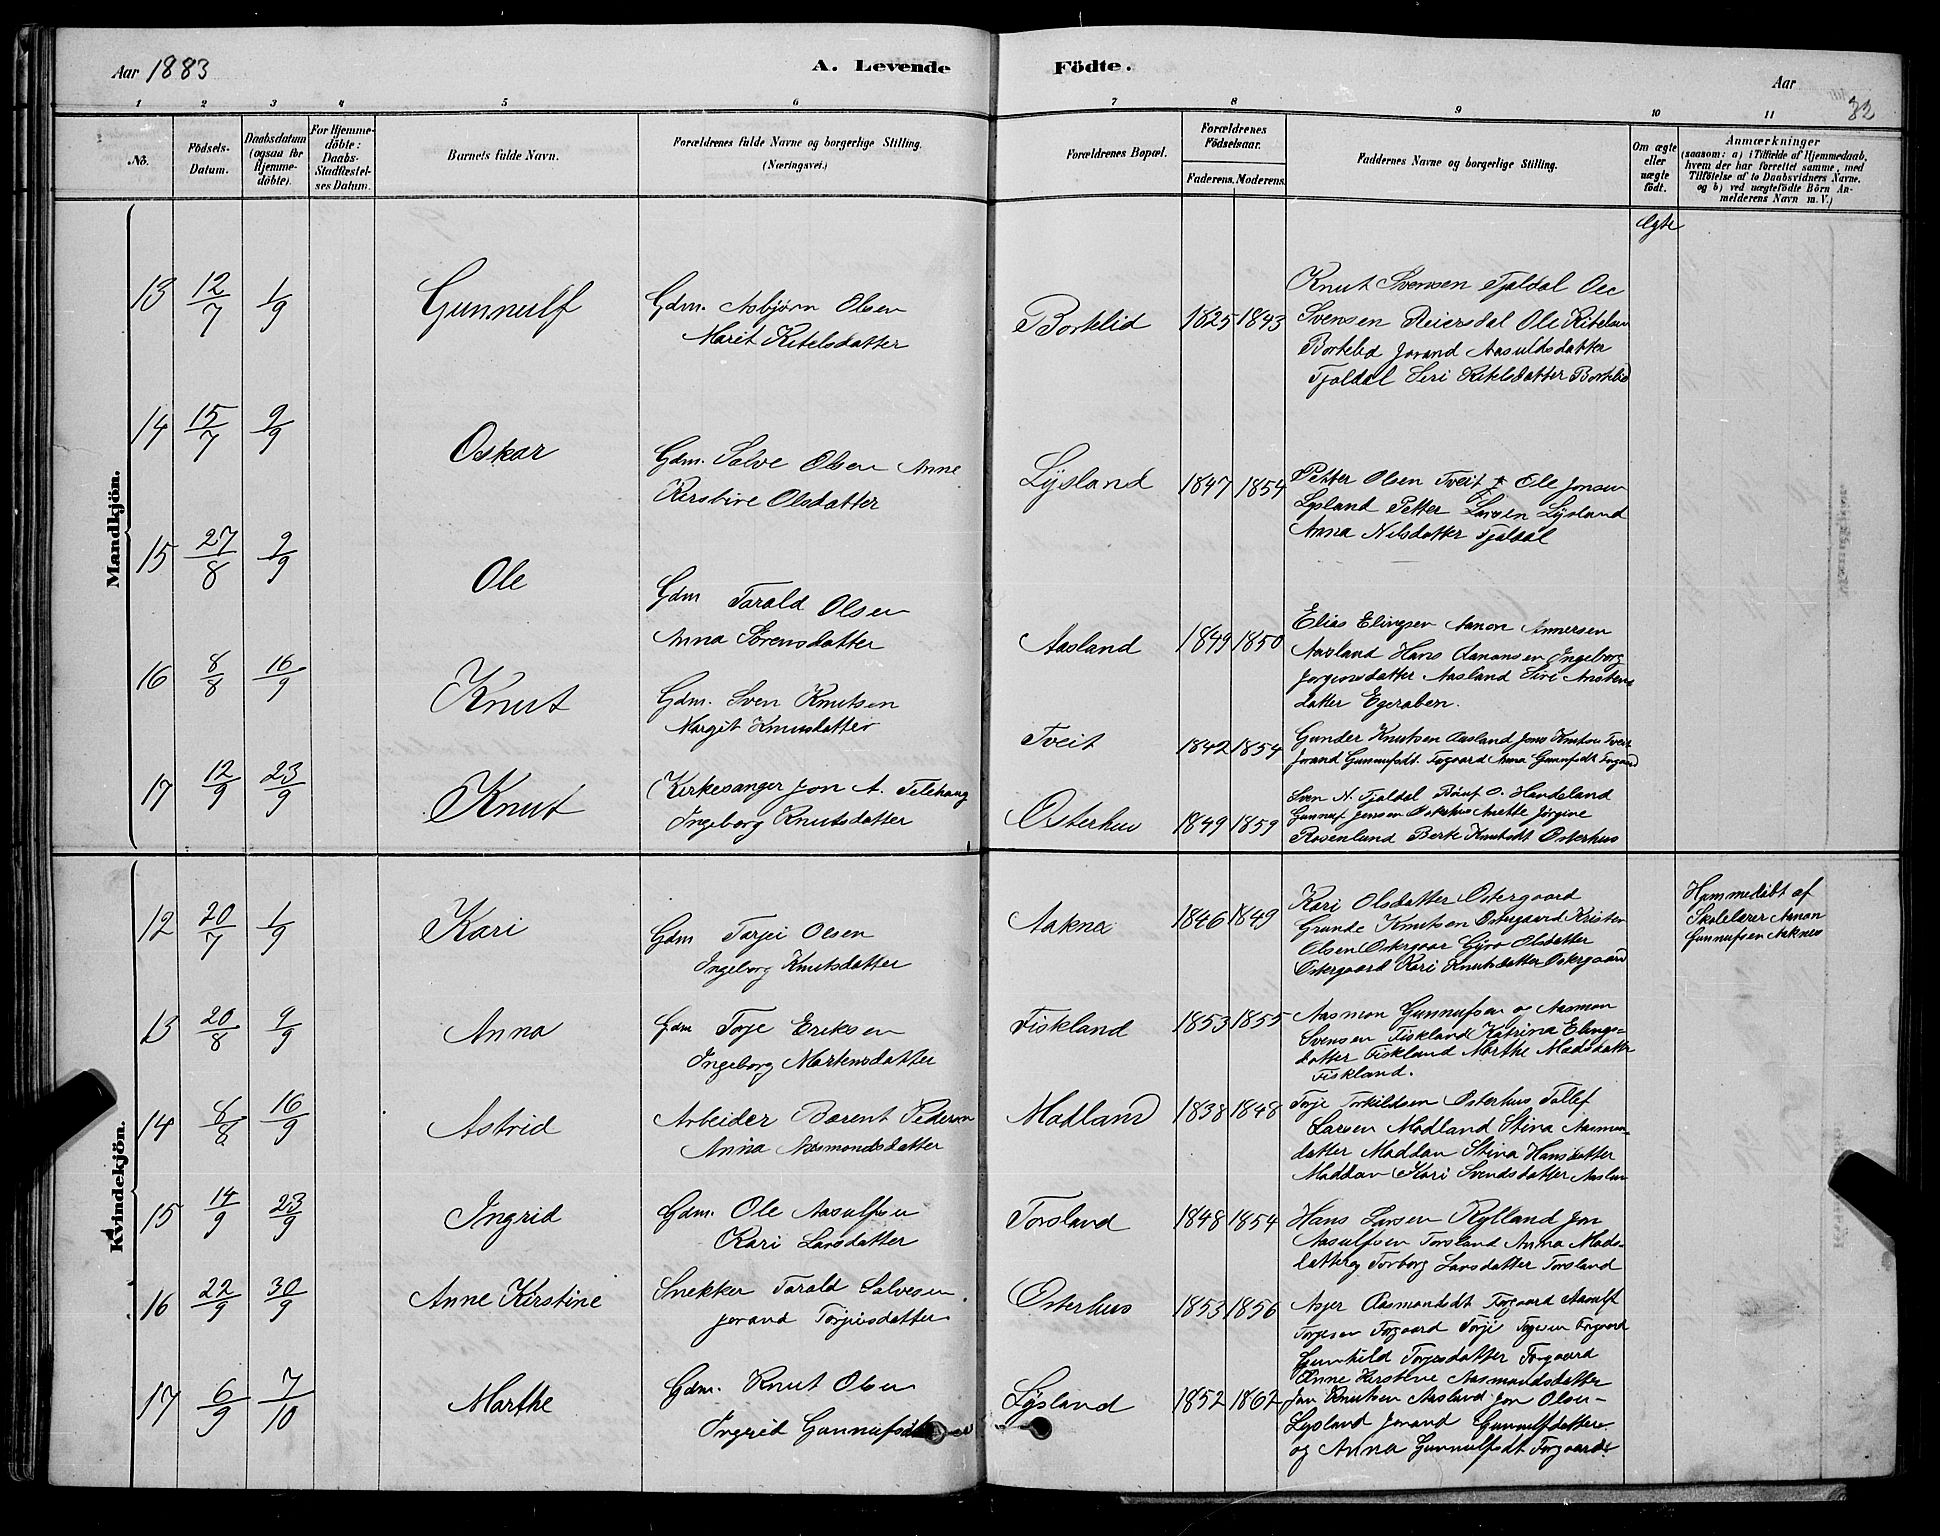 Aar 1883
A. Levende
Födte.
Aar
32
1 2 3 4 5 6 7 8 9 10 11
No.
Födsels-Datum.
Daabsdatum (ogsaa for Hjemme-döbte).
For Hjemme-döbte: Daabs-Stadfæstel-ses Datum.
Barnets fulde Navn.
Forældrenes fulde Navne og borgerlige Stilling.
(Næringsvei.)
Forældrenes Bopæl.
Forældrenes Födselsaar.
Faderens. Moderens.
Faddernes Navne og borgerlige Stilling.
Om ægte eller uægte födt.
Anmærkninger
(saasom: a) i Tilfælde af Hjemmedaab,
hvem der har forrettet samme, med
Tilföielse af to Daabsvidners Navne.
og b) ved uægtefödte Börn An-
melderens Navn m. V.)
Mandkjön.
Ægte
13 12/7 1/9 Gunnulf
Gdm. Asbjørn Olsen
Marit Kitelsdatter
Bortelid 1825 1843
Knut Svensen Tjaldal Ole
Svensen Reiersdal Ole Kitelsen
Bortelid Jorand Aasuldsdatter
Tjaldal Siri Kitelsdatter Bortelid
14 15/7 9/9 Oskar
Gdm. Salve Olsen Anne
Kirstine Olsdatter
Lysland 1847 1854
Petter Olsen Tveit Ole Jonsen
Lysland Petter Larsen Lysland
Anna Nilsdatter Tjaldal
15 27/8 9/9 Ole
Gdm Tarald Olsen
Anna Sørensdatter
Aasland 1849 1850
Elias Elingsen Aanon Annersen
Aasland Hans Aanonsen Ingeborg
Jorgensdatter Aasland Siri Anstens
datter Egeraben.
16 8/8 16/9 Knut
Gdm. Sven Knutsen
Margit Knusdatter
Tveit 1842 1854
Gunder Knutsen Aasland Jens Knutsen Tveit
Jorand Gunnufsdt. Forgaard Anna Gunnufsdt Forgaard
17 12/9 23/9 Knut
Kirkesanger Jon A. Telehaug
Ingeborg Knutsdatter
Osterhus 1849 1859
Sven N. Tjaldal O. Handeland
Gunnuf Jensen Osterhus Anette Jørgine
Rosenlund Berte Knutsdt Osterhus
Kvindekjön.
12 20/7 1/9 Kari
Gdm Tarjei Olsen
Ingeborg Knutsdatter
Aakna 1846 1849
Kari Olsdatter Ostergaard
Grunde Knutsen Ostergaard Kristen
Olsen Ostergaar Gyro Olsdatter
Ostergaard Kari Knutsdatter Ostergaard
Hjemmedöbt af
Skolelærer Aanon
Gunnufsen Aaknes
13 20/8 9/9 Anna
Gdm Torje Eriksen
Ingeborg Martensdatter
Fiskland 1853 1855
Aasmon Gunnufsen og Aasmon
Svensen Fiskland Katrina Elings-
datter Fiskland Marthe Madsdatter
Fiskland.
14 8/8 16/9 Astrid
Arbeider Barent Pedersen
Anna Aasmondsdatter
Modland 1838 1848
Torje Torkildsen Osterhus Tollef
Larsen Modland Stina Aasmon-
datter Moddan Stina Hansdatter
Moddan Kari Svendsdatter Aaslan
15 14/9 23/9 Ingrid
Gdm. Ole Aasulfsen
Kari Larsdatter
Torsland 1848 1854
Hans Larsen Rylland Jon
Aasulfsen Torsland Anna Mads-
datter og Torborg Larsdatter Torsland
16 22/9 30/9 Anne Kirstine
Snekker Tarald Salvesen
Jorand Torjusdatter
Osterhus 1853 1856
Asjer Aasmondsdt Forgaard Aasulf
Torjesen Forgaard Torje Torjesen Forgaard
Gunhild Torjesdatter Forgaard
Anne Kirstine Aasmondsdatter
17 6/9 7/10 Marthe
Gdm. Knut Olsen
Ingrid Gunnufsdt
Lysland 1852 1862
Jon Knutsen Aasland Jon Olsen
Lysland Jorand Gunnulfdatter
og Anna Gunnulfsdt Forgaard